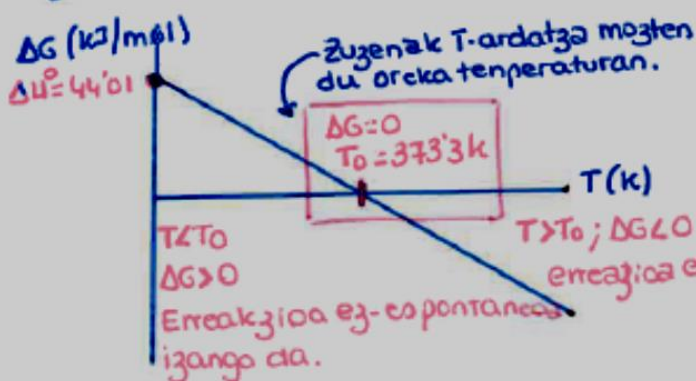 ΔG (kJ/mol)
ΔH°=44'01
Zuzenak T-ardatza mozten
du oreka tenperaturan.
ΔG=0
T₀=373'3k
T(k)
T<T₀
ΔG>0
Erreakzioa ez-espontaneoa
izango da.
T>T₀; ΔG<0
erreazioa e